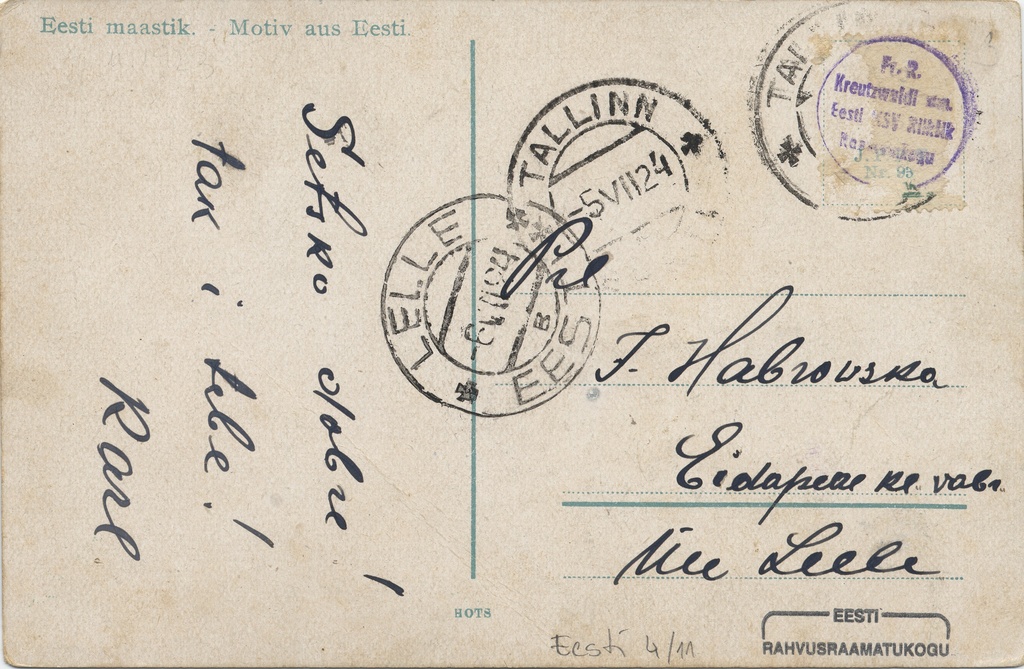 Eesti maastik. - Motiv aus Eesti.
Setsko dobre!
tak i tebe!
Karl
TALLINN
-5 VII 24
EESTI
LELLE
EESTI
B
TAL
Fr. R.
Kreutzwaldi nim.
Eesti NSV Riiklik
Raamatukogu
J. P.
Nr. 95
Pre
F. Habrovska
Eidapere kl. vabr.
Üle Lelle
HOTS
Eesti 4/11
EESTI
RAHVUSRAAMATUKOGU